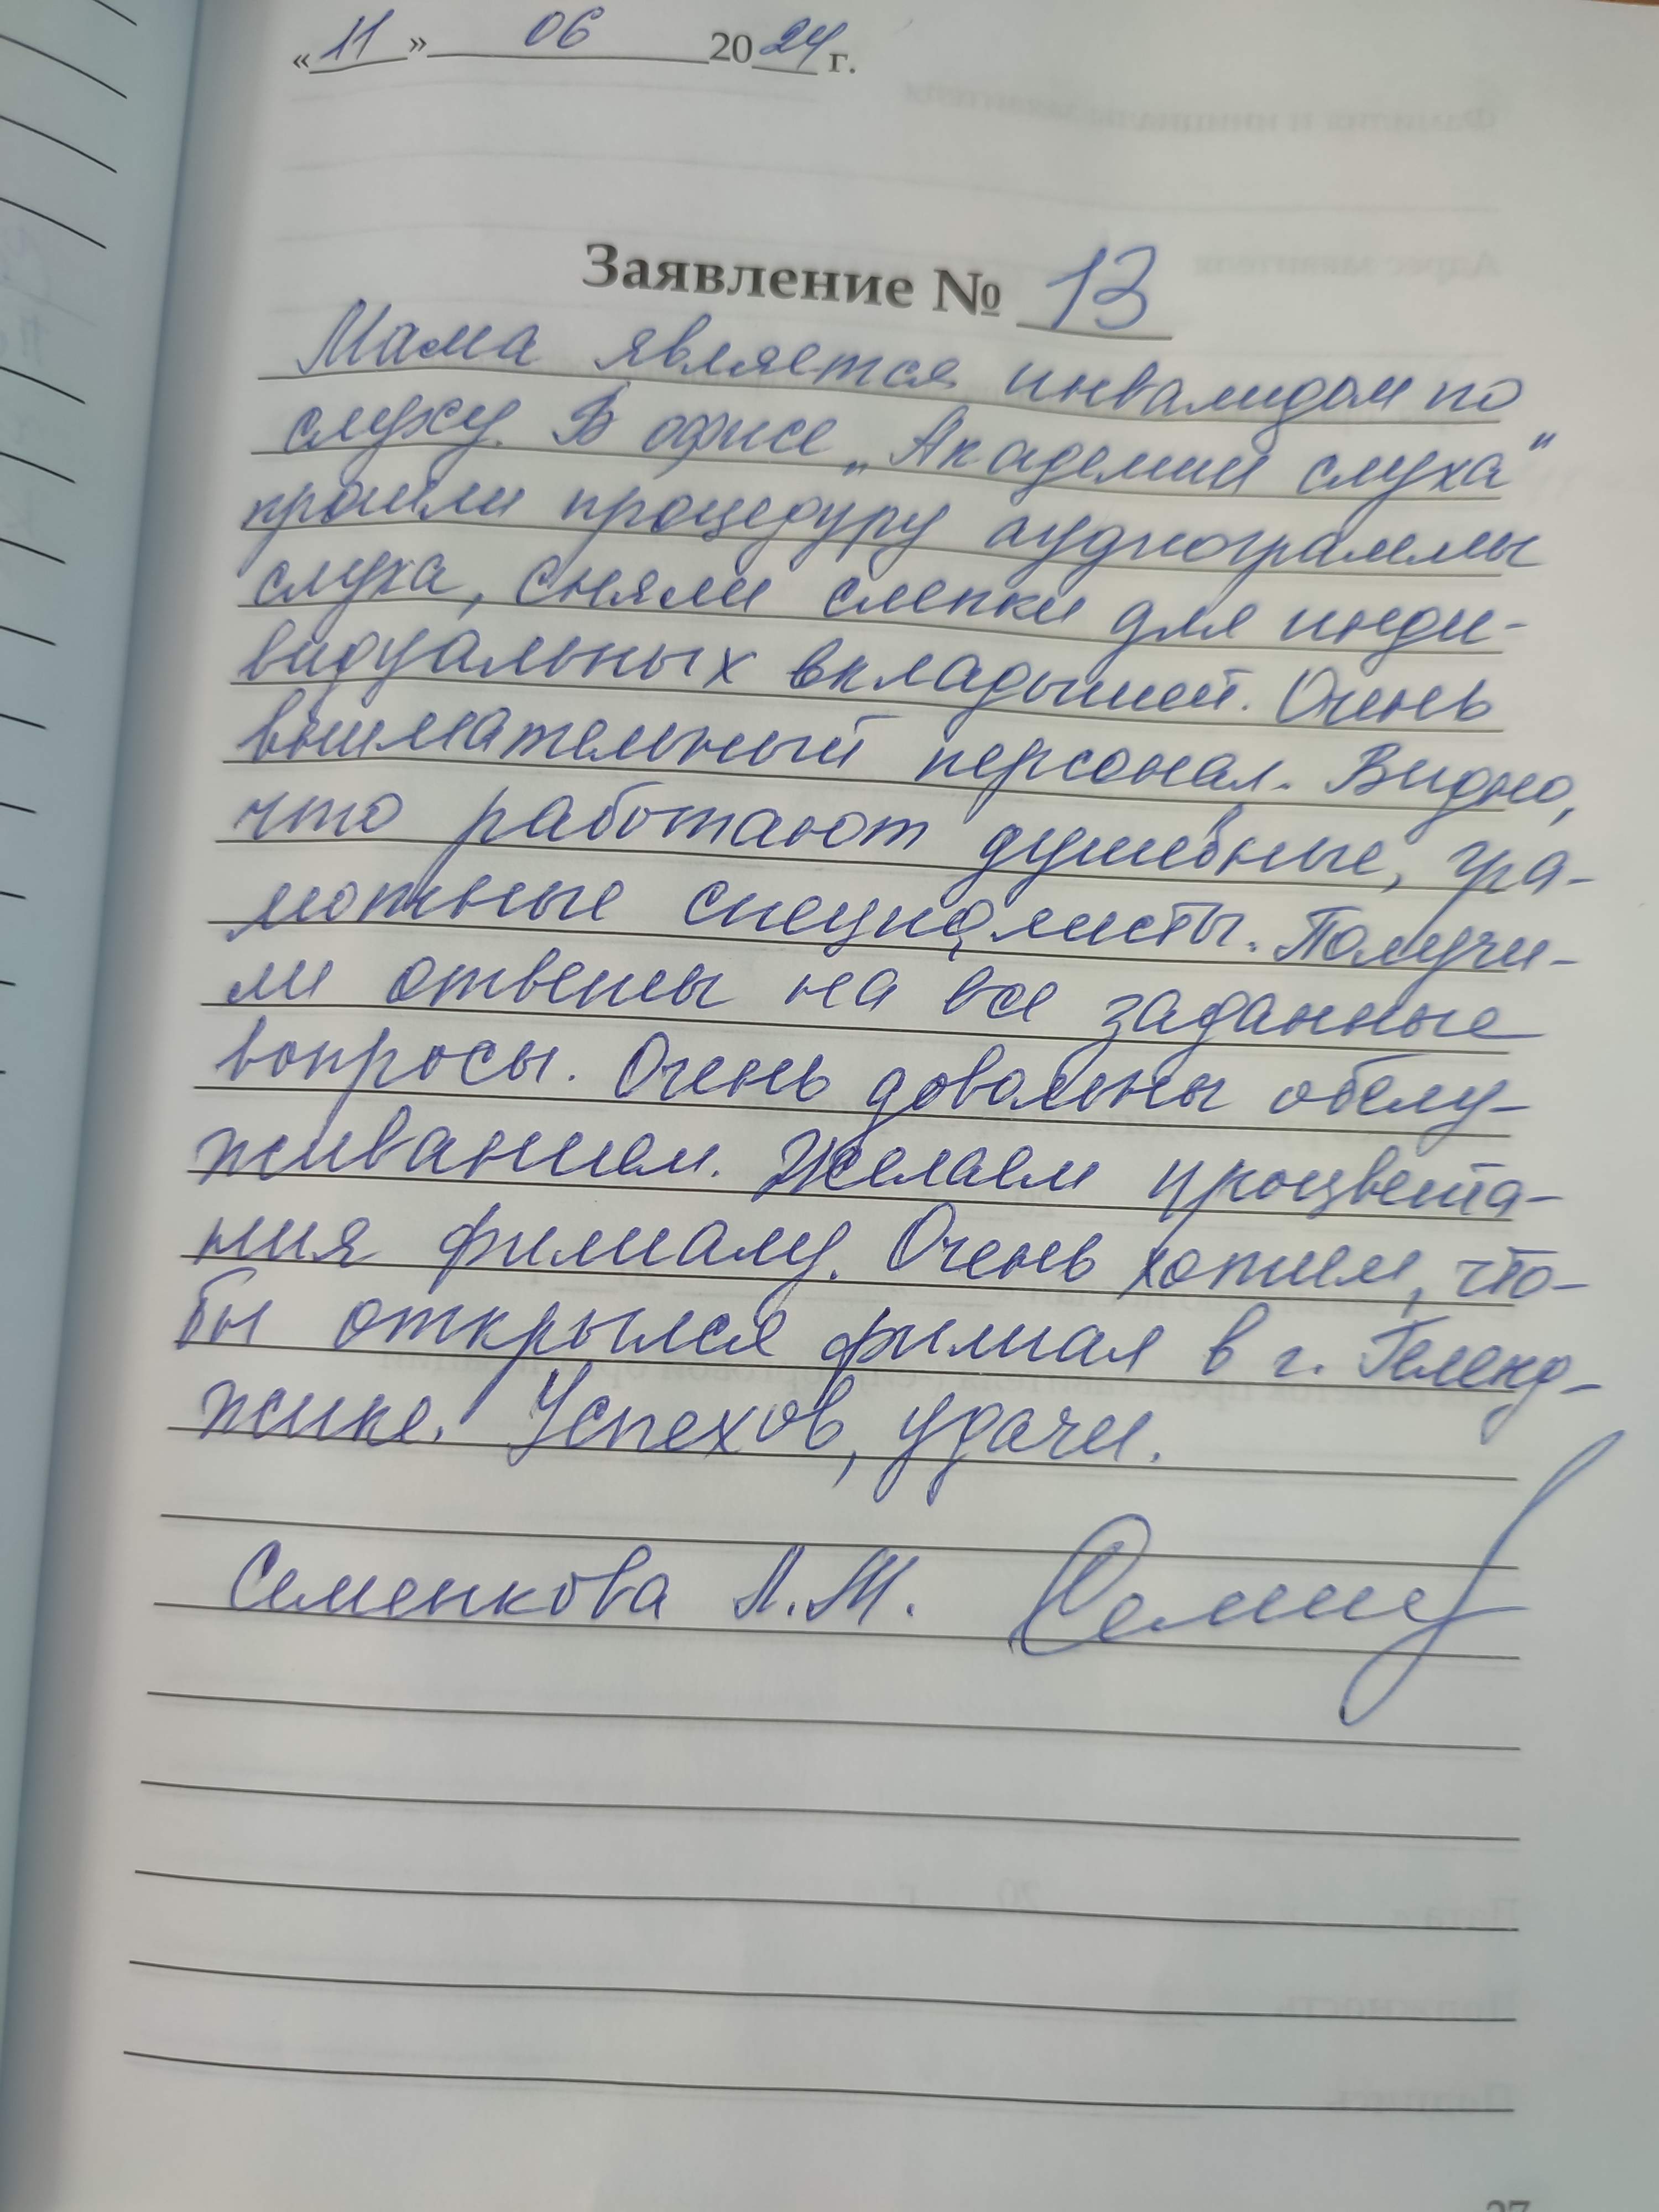 «11» 06 2024 г.
Заявление № 13
Мама является инвалидом по
слуху. В офисе „Академии слуха"
прошли процедуру аудиограммы
слуха, сняли слепки для инди-
видуальных вкладышей. Очень
внимательный персонал. Видно,
что работают душевные, гра-
мотные специалисты. Получи-
ли ответы на все заданные
вопросы. Очень довольны обслу-
живанием. Желаем процвета-
ния филиалу. Очень хотим, что-
бы открылся филиал в г. Геленд-
жике. Успехов, удачи.
Семенкова Л.М.